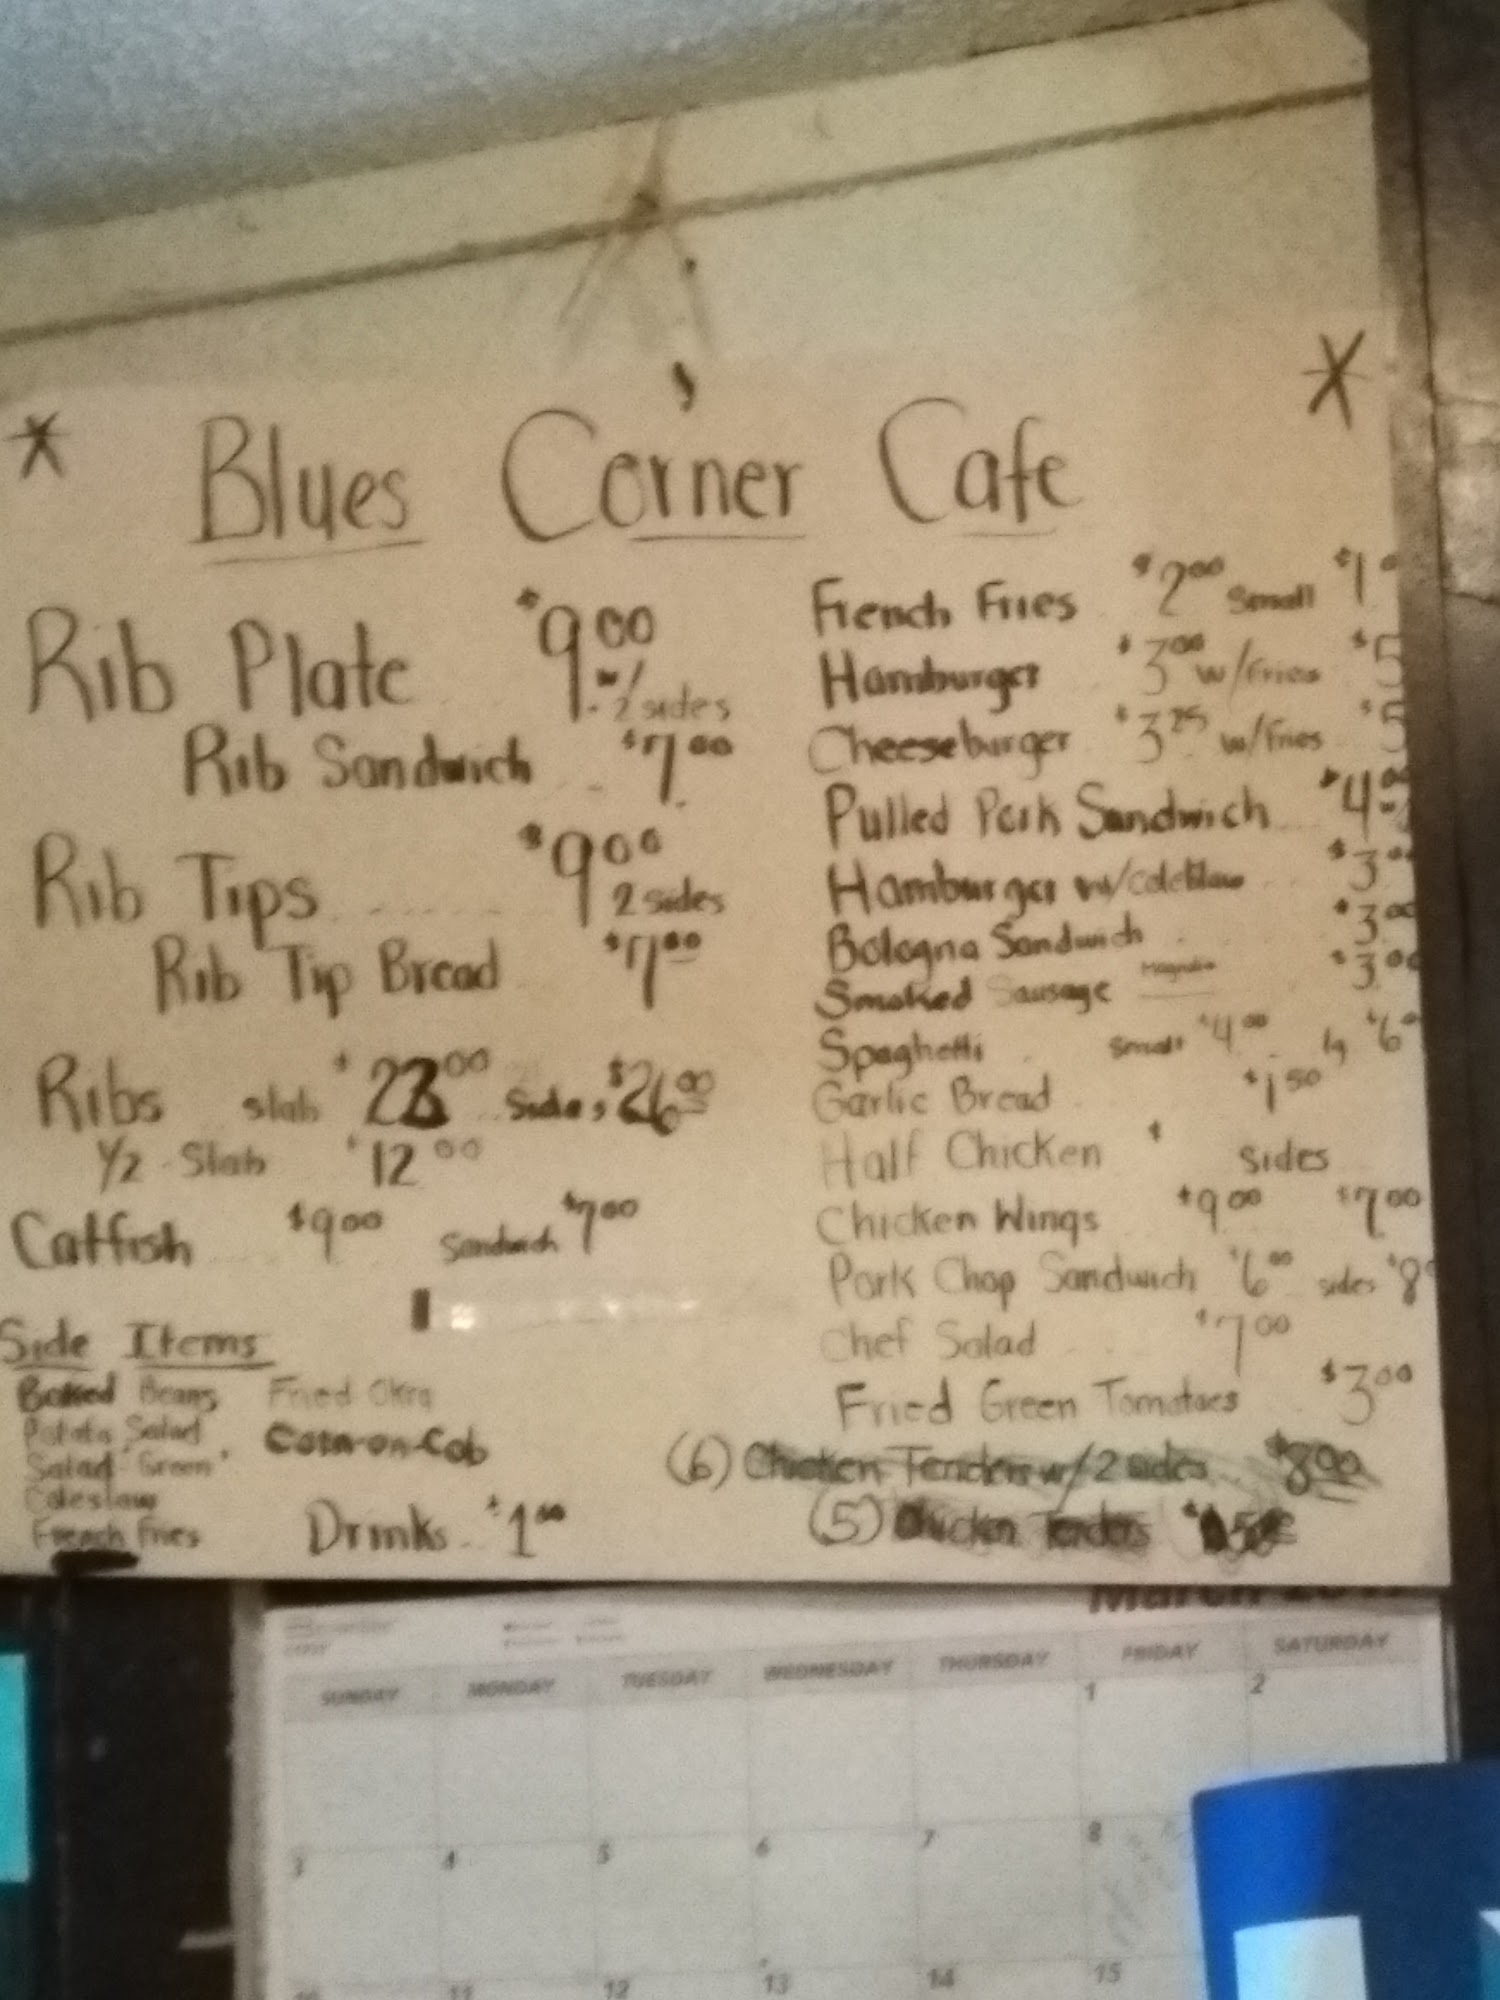 * Blues Corner Cafe *
Rib Plate $9.00 w/ 2 sides
Rib Sandwich $7.00
Rib Tips $9.00 2 sides
Rib Tip Bread $7.00
Ribs slab $23.00 Sides $26.00
1/2 Slab $12.00
Catfish $9.00 Sandwich $7.00
Side Items
Baked Beans Fried Okra
Potato Salad Corn-on-Cob
Salad "Green"
Coleslaw
French Fries
Drinks $1.00
French Fries $2.00 Small $1
Hamburger $3.00 w/Fries $5
Cheeseburger $3.25 w/Fries $5
Pulled Pork Sandwich $4.00
Hamburger w/coleslaw $3.00
Bologna Sandwich $3.00
Smoked Sausage Magnolia $3.00
Spaghetti Small $4.00 lg $6
Garlic Bread $1.50
Half Chicken $ sides
Chicken Wings $9.00 $7.00
Pork Chop Sandwich $6.00 sides $8
Chef Salad $7.00
Fried Green Tomatoes $3.00
(6) Chicken Tenders w/ 2 sides $8.00
(5) Chicken Tenders
March
SUNDAY MONDAY TUESDAY WEDNESDAY THURSDAY FRIDAY SATURDAY
1 2
3 4 5 6 7 8
10 11 12 13 14 15